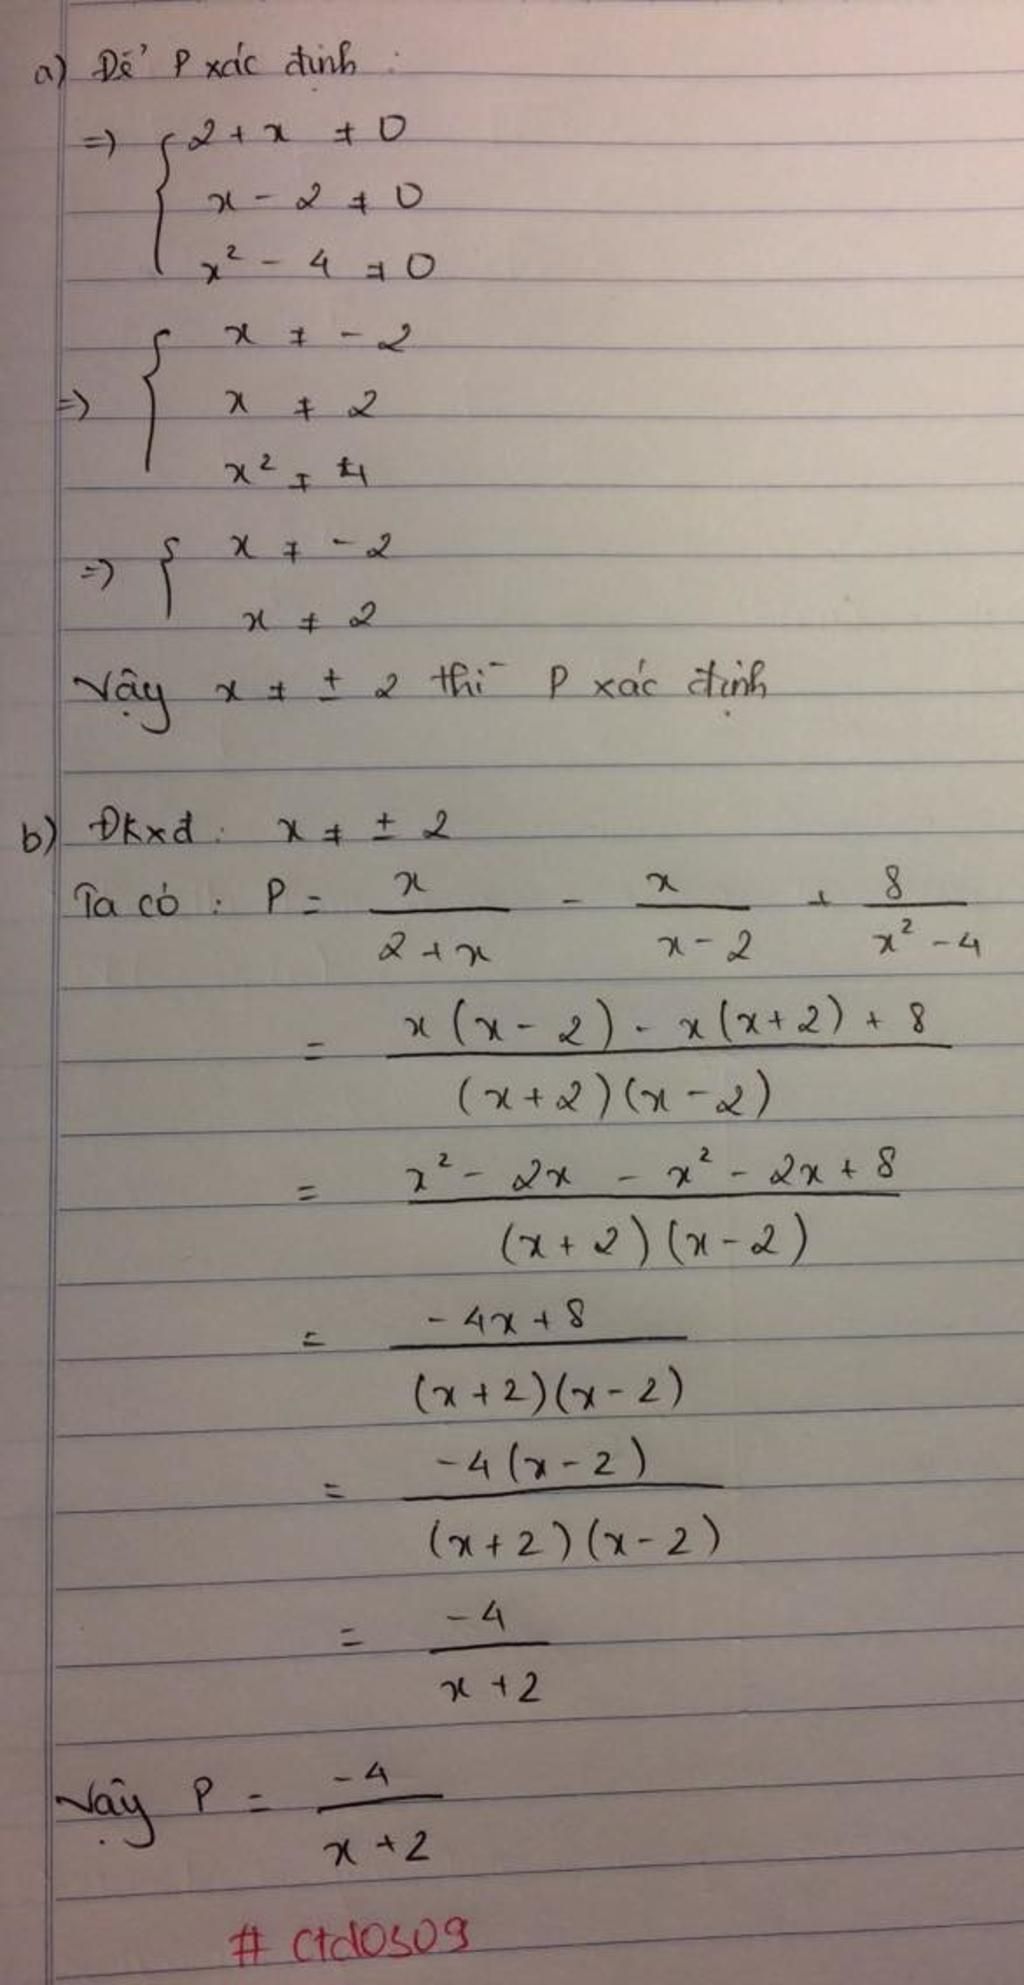 a) Để P xác định :
=> { 2 + x ≠ 0
x - 2 ≠ 0
x² - 4 ≠ 0
=> { x ≠ -2
x ≠ 2
x² ≠ 4
=> { x ≠ -2
x ≠ 2
Vậy x ≠ ± 2 thì P xác định
b) Đkxđ : x ≠ ± 2
Ta có : P = x / (2 + x) - x / (x - 2) + 8 / (x² - 4)
= (x(x - 2) - x(x + 2) + 8) / ((x + 2)(x - 2))
= (x² - 2x - x² - 2x + 8) / ((x + 2)(x - 2))
= (-4x + 8) / ((x + 2)(x - 2))
= -4(x - 2) / ((x + 2)(x - 2))
= -4 / (x + 2)
Vậy P = -4 / (x + 2)
# ctd0509